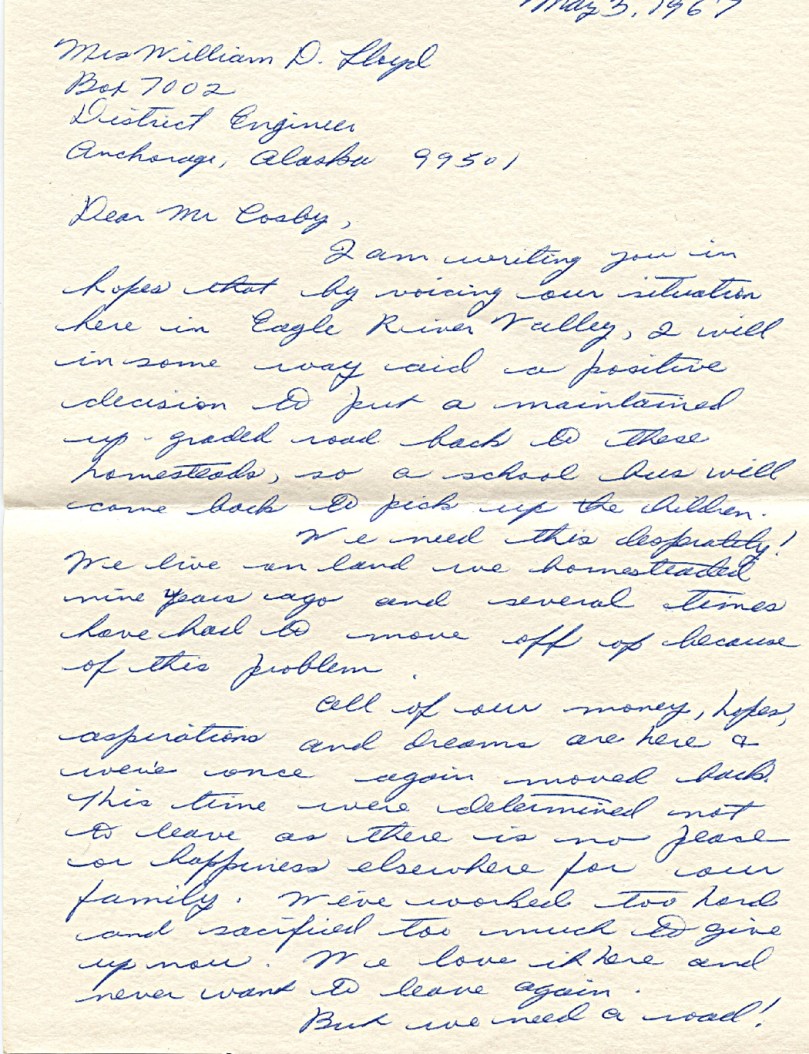 May 3, 1967
Mrs William D. Lloyd
Box 7002
District Engineer
Anchorage, Alaska 99501
Dear Mr Cosby,
I am writing you in
hopes that by voicing our situation
here in Eagle River Valley, I will
in some way aid a positive
decision to put a maintained
up-graded road back to these
homesteads, so a school bus will
come back to pick up the children.
We need this desperately!
We live on land we homesteaded
nine years ago and several times
have had to move off of because
of this problem.
All of our money, hopes,
aspirations and dreams are here &
we're once again moved back.
This time we're determined not
to leave as there is no peace
or happiness elsewhere for our
family. We've worked too hard
and sacrificed too much to give
up now. We love it here and
never want to leave again.
But we need a road!